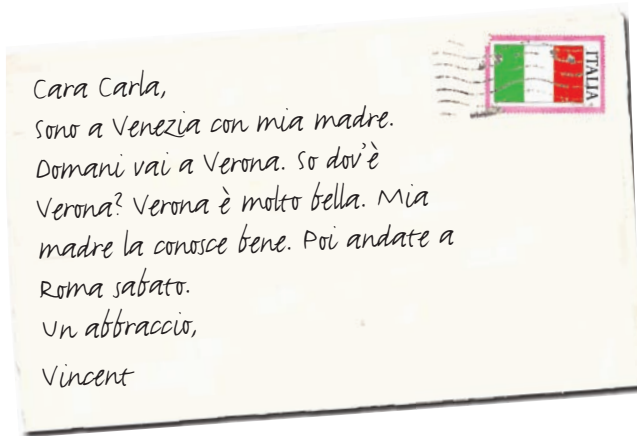 ITALIA
Cara Carla,
Sono a Venezia con mia madre.
Domani vai a Verona. So dov'è
Verona? Verona è molto bella. Mia
madre la conosce bene. Poi andate a
Roma sabato.
Un abbraccio,
Vincent